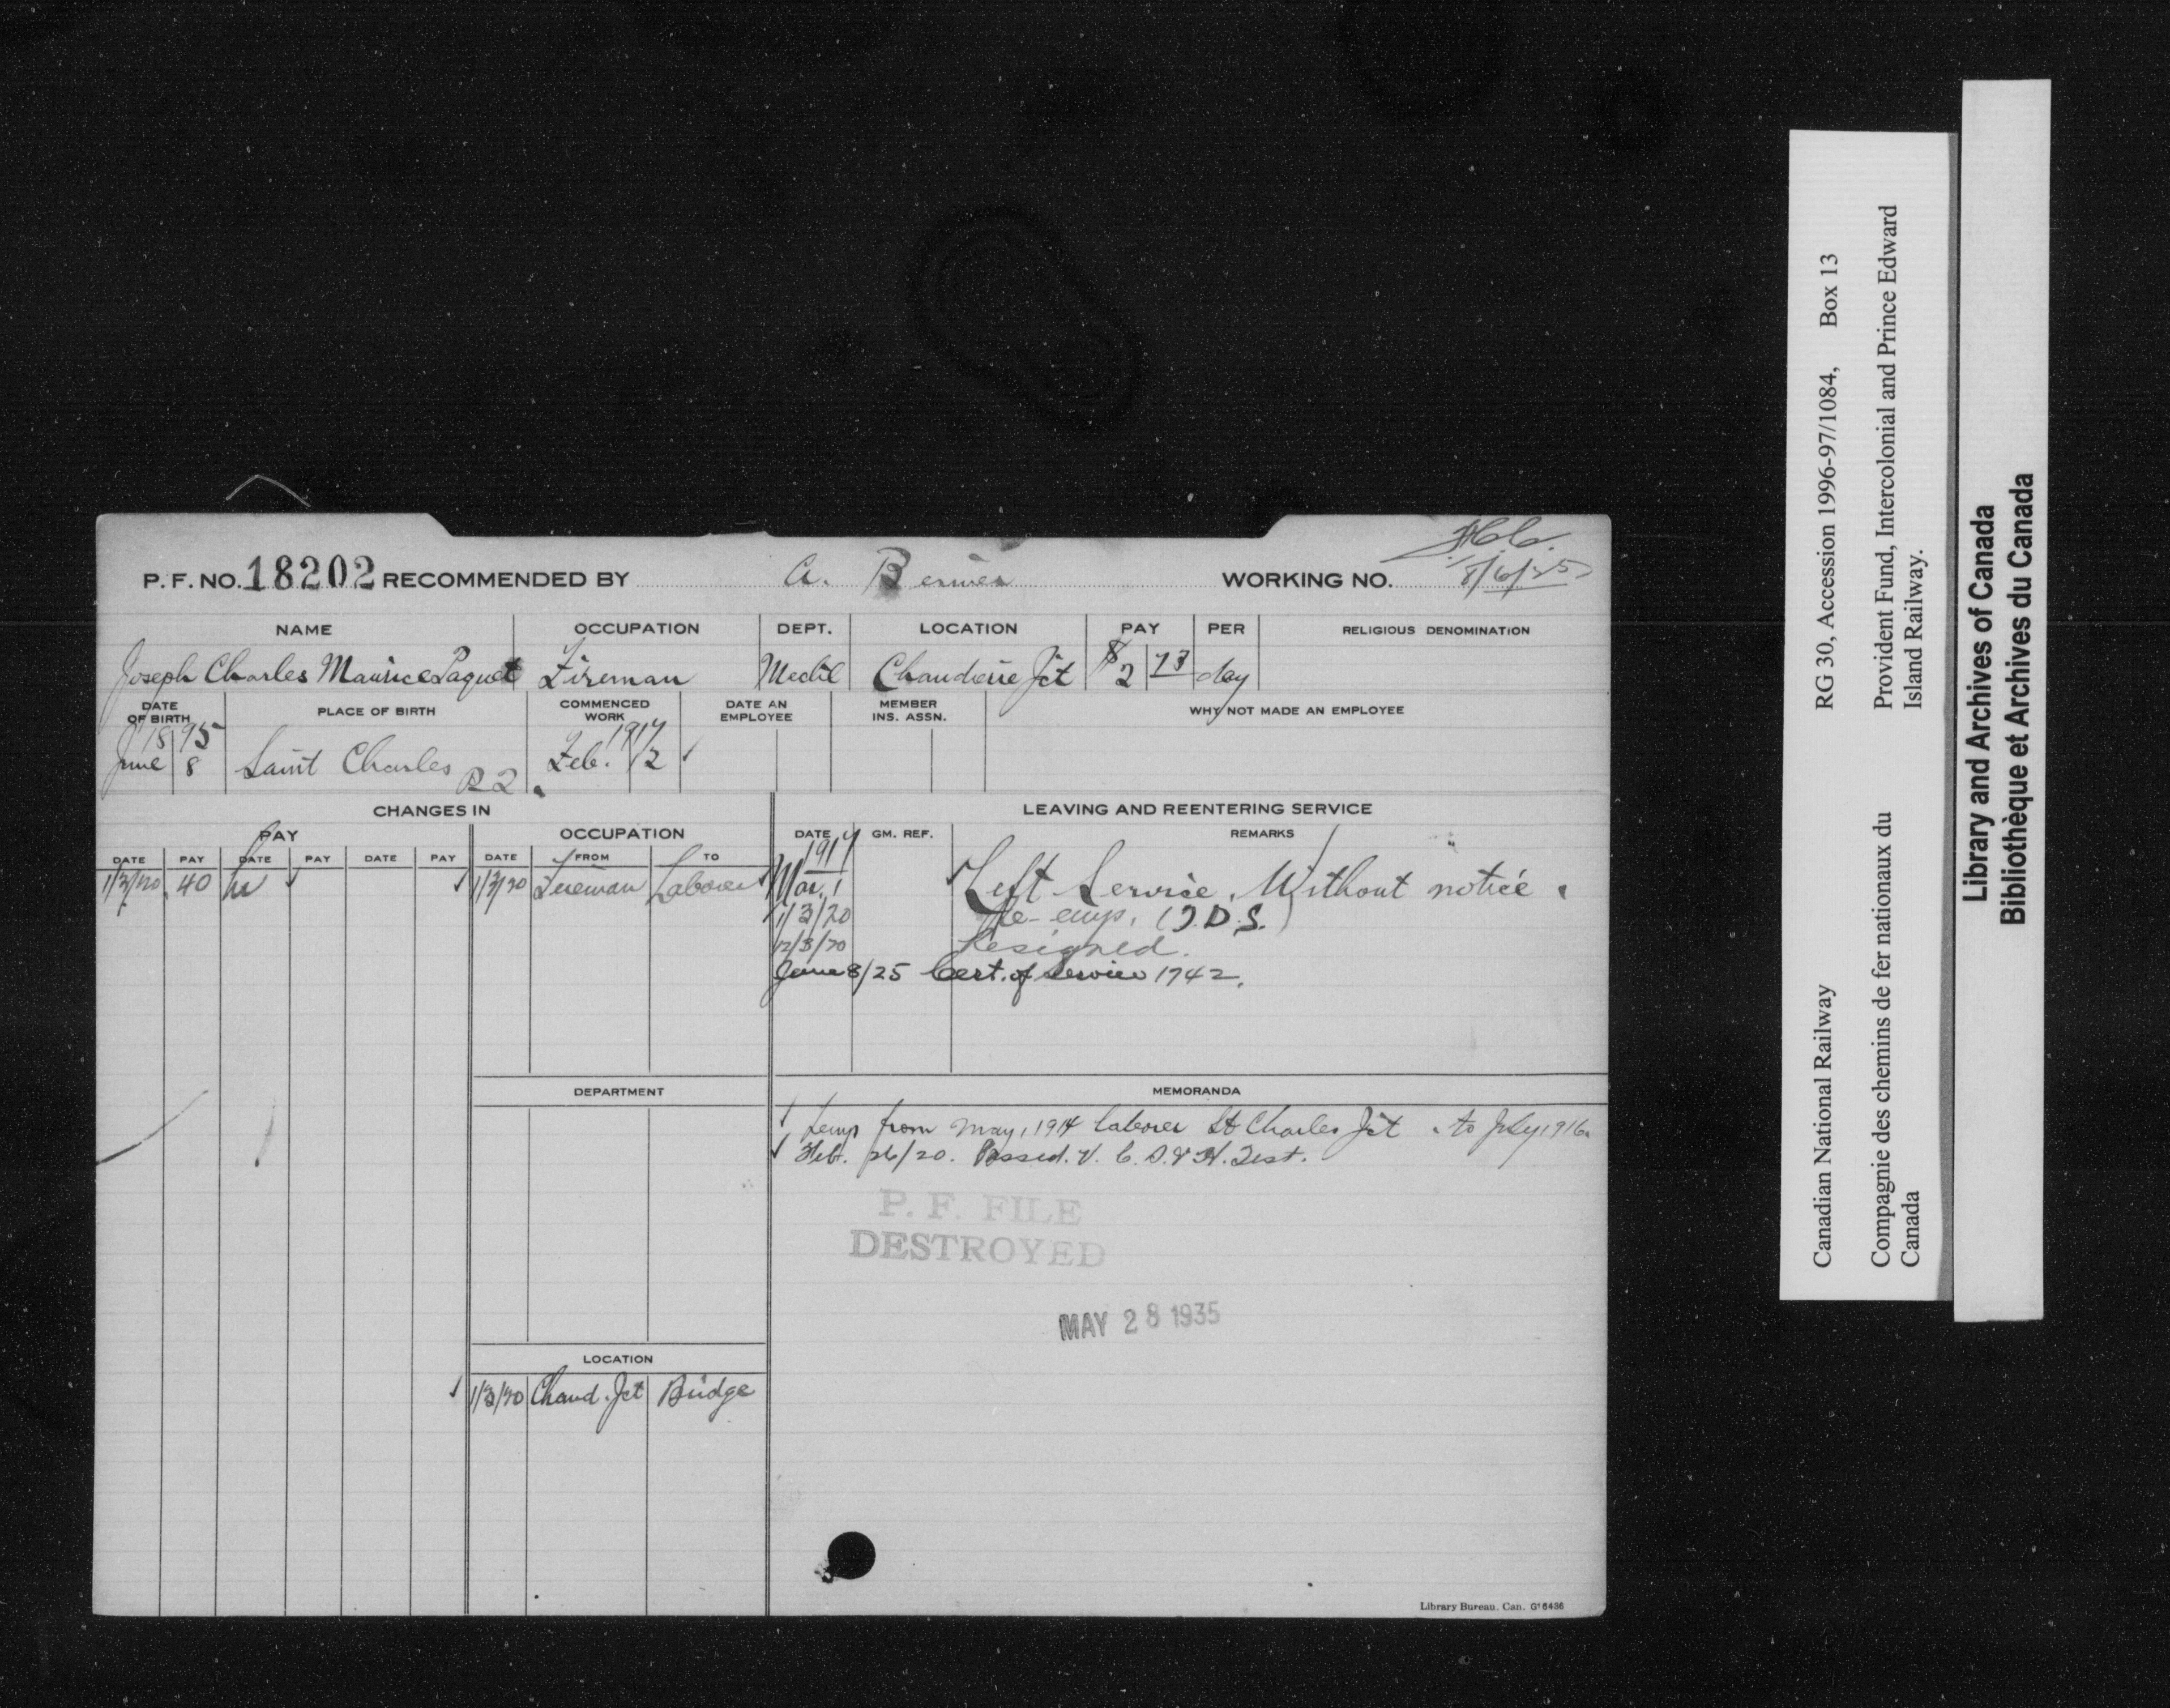 P. F. NO. 18202 RECOMMENDED BY A. Bernier WORKING NO. 8/6/25
NAME OCCUPATION DEPT. LOCATION PAY PER RELIGIOUS DENOMINATION
Joseph Charles Maurice Paquet Fireman Mech'l Chaudiere Jct $2 73 day
DATE OF BIRTH PLACE OF BIRTH COMMENCED WORK DATE AN EMPLOYEE MEMBER INS. ASSN. WHY NOT MADE AN EMPLOYEE
1895 1917
June 8 Saint Charles Feb. 12
P2.
CHANGES IN LEAVING AND REENTERING SERVICE
PAY OCCUPATION DATE GM. REF. REMARKS
DATE PAY DATE PAY DATE PAY DATE FROM TO 1917
1/3/20 .40 hr 1/3/20 Fireman Laborer Mar. 1 Left Service. Without notice.
1/3/20 Re-emp. (J.D.S.)
12/3/20 Resigned.
June 8/25 Cert. of Service 1742.
DEPARTMENT MEMORANDA
Temp from May, 1914 laborer St Charles Jct. to July 1916.
Feb. 26/20. Passed. V. C. S. & H. Test.
P. F. FILE
DESTROYED
MAY 28 1935
LOCATION
1/3/20 Chaud. Jct Bridge
Library Bureau. Can. G16486
Canadian National Railway RG 30, Accession 1996-97/1084, Box 13
Compagnie des chemins de fer nationaux du Canada
Provident Fund, Intercolonial and Prince Edward Island Railway.
Library and Archives of Canada
Bibliothèque et Archives du Canada